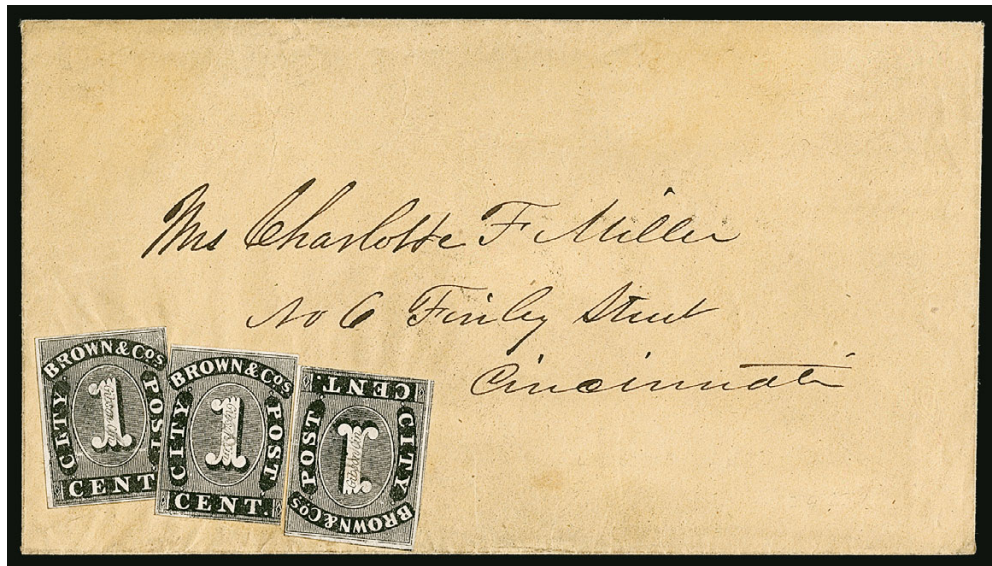 Mrs Charlotte F Miller
No 6 Finley Street
Cincinnati
BROWN & Cos
CITY POST
1
CENT
BROWN & Cos
CITY POST
1
CENT.
BROWN & Cos
CITY POST
1
CENT.